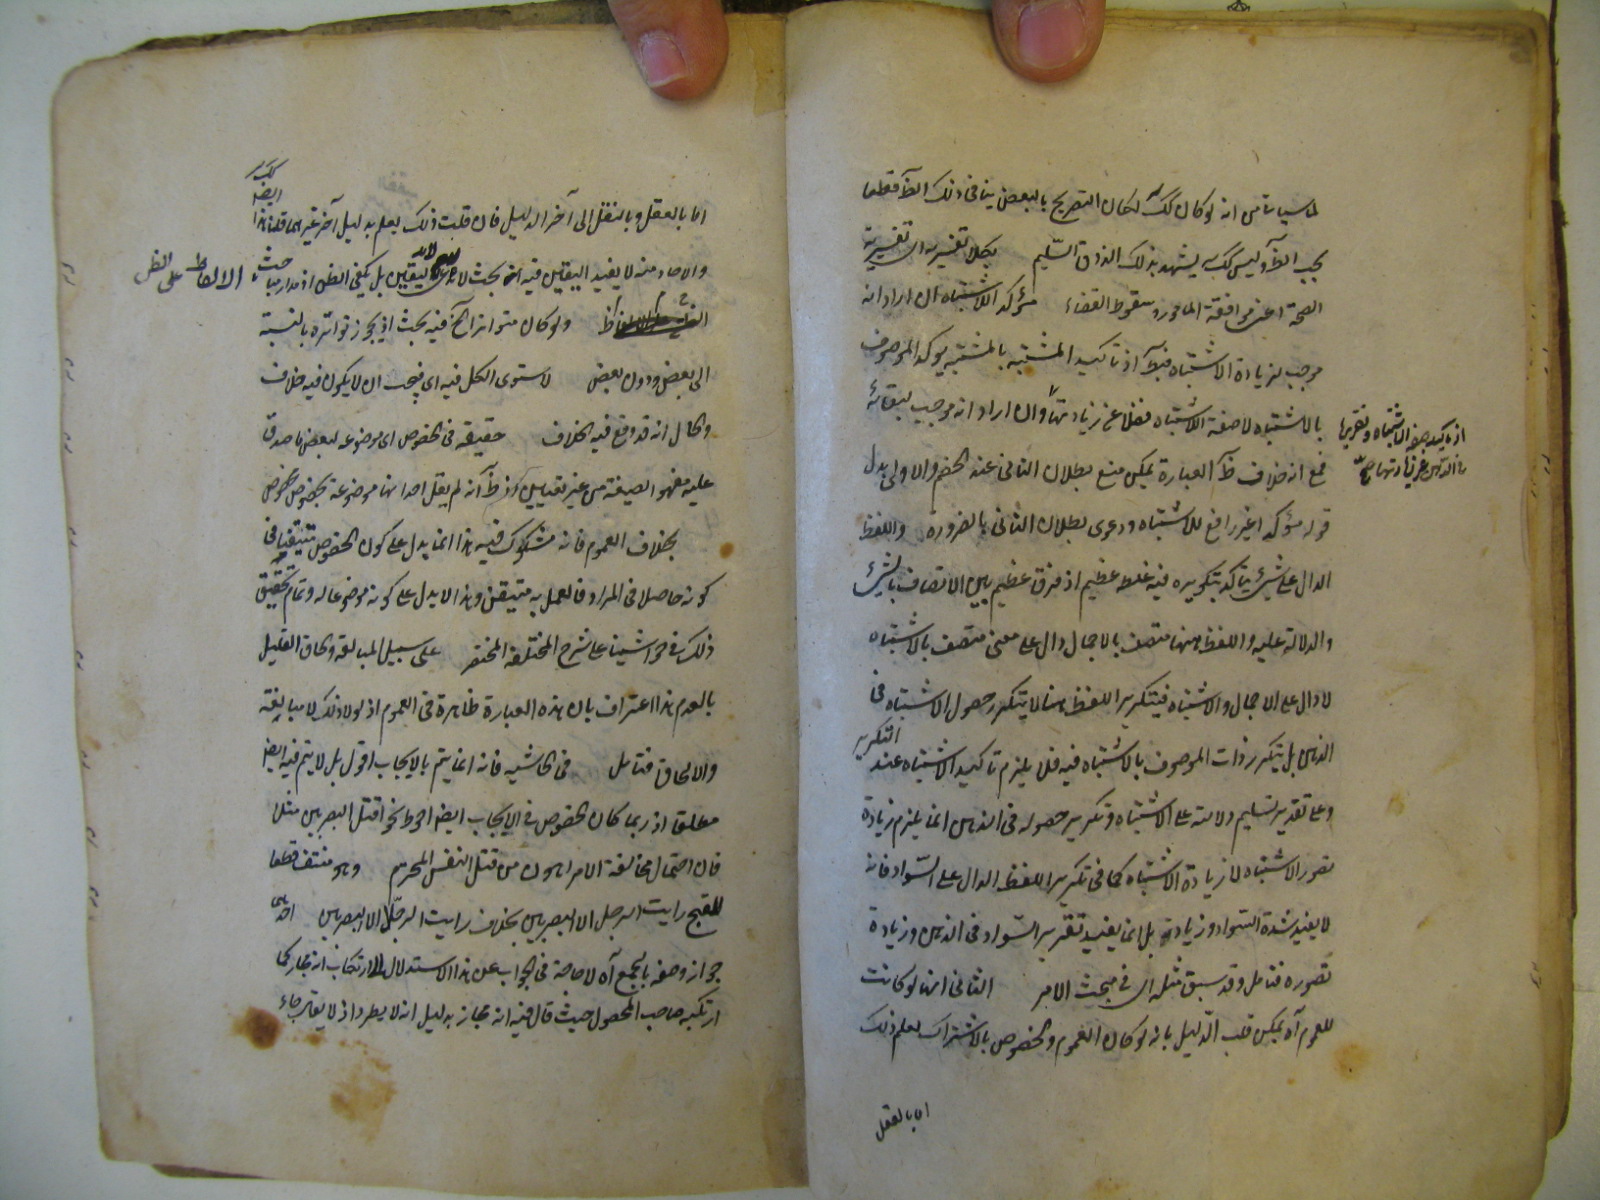 لما سياتى من انه لو كان كك لكان التصريح بالبعض ينافى ذلك الظ قطعا
بحسب الظ وليس كك يشهد بذلك الذوق السليم بكلا تفسيريه اى تفسيريه
الصحة اعنى موافقة المامور وسقوط القضاء مؤكد للاشتباه ان اراد انه
موجب لزيادة الاشتباه فبط اذ تاكيد المشتبه بالمشتبه يؤكد الموصوف
بالاشتباه لا صفة الاشتباه فضلا عن زيادتها وان اراد انه موجب لبقائه
اذ تاكيد صفة الاشتباه وتقريرها
فى الذهن غير زيادتها صح
فمع انه خلاف ظ العبارة يمكن منع بطلان الثانى عند الخصم والاولى بدل
قوله مؤكدا غير رافع للاشتباه ودعوى بطلان الثانى بالضرورة واللفظ
الدال على شئ يتاكد بتكريره فيه غلط عظيم اذ فرق عظيم بين الاتصاف بالشئ
والدلالة عليه واللفظ ههنا متصف بالاجمال دال على معنى متصف بالاشتباه
لا دال على الاجمال والاشتباه فبتكرير اللفظ ههنا لا يتكرر حصول الاشتباه فى
الذهن بل يتكرر ذات الموصوف بالاشتباه فيه فلا يلزم تاكيد الاشتباه عند التكرير
وعلى تقدير تسليم دلالته على الاشتباه وتكرير حصوله فى الذهن انما يلزم زيادة
تصور الاشتباه لا زيادة الاشتباه كما فى تكرير اللفظ الدال على السواد فانه
لا يفيد شدة السواد وزيادته بل انما يفيد تقرير السواد فى الذهن وزيادة
تصوره فتامل وقد سبق مثله فى مبحث الامر الثانى انها لو كانت
للعموم آه يمكن قلب الدليل بانه لو كان العموم والخصوص بالاشتراك لعلم ذلك
اما بالعقل
اما بالعقل وبالنقل الى آخر الدليل فان قلت ذلك يعلم بدليل آخر غيرهما قلنا هذا
ايضا كك
والاحاد منه لا يفيد اليقين فيه بحث لا يقين بل يكفى الظن اذ مدار مباحث
الالفاظ على الظن
ولو كان متواترا آخ فيه بحث اذ يجوز تواتره بالنسبة
الى بعض ودون بعض لاستوى الكل فيه اى فيجب ان لا يكون فيه خلاف
والحال انه قد وقع فيه الخلاف حقيقة فى الخصوص اى موضوعه لبعض ما صدق
عليه مفهوم الصيغة من غير تعيين اذ ظ انه لم يقل احد انها موضوعة بخصوص خصوص
بخلاف العموم فانه مشكوك فيه هذا انما يدل على كون الخصوص متيقنا فى
كونه حاصلا فى المراد فالعمل به متيقن وهذا لا يدل على كونه موضوعا له وتمام تحقيق
ذلك فى حواشينا على شرح المختصر على سبيل المبالغة والحاق القليل
بالعدم هذا اعتراف بان هذه العبارة ظاهرة فى العموم اذ لولا ذلك لا مبالغة
والالحاق فتامل فى الحاشية فانه انما يتم بالايجاب اقول بل لا يتم فيه ايضا
مطلقا اذ ربما كان الخصوص فى الايجاب ايضا احوط نحو اقتل البصريين مثلا
فان احتمال مخالفة الامر اهون من قتل النفس المحرم وهو منتف قطعا
للقبح رايت الرجل الا البصريين بخلاف رايت الرجل الا البصريين
جواز وصفه بالجمع آه لا حاجة فى الجواب عن هذا الاستدلال ارتكاب انه مجاز كما
ارتكبه صاحب المحصول حيث قال فيه انه مجاز بدليل انه لا يطرد اذ لا يقال جاء